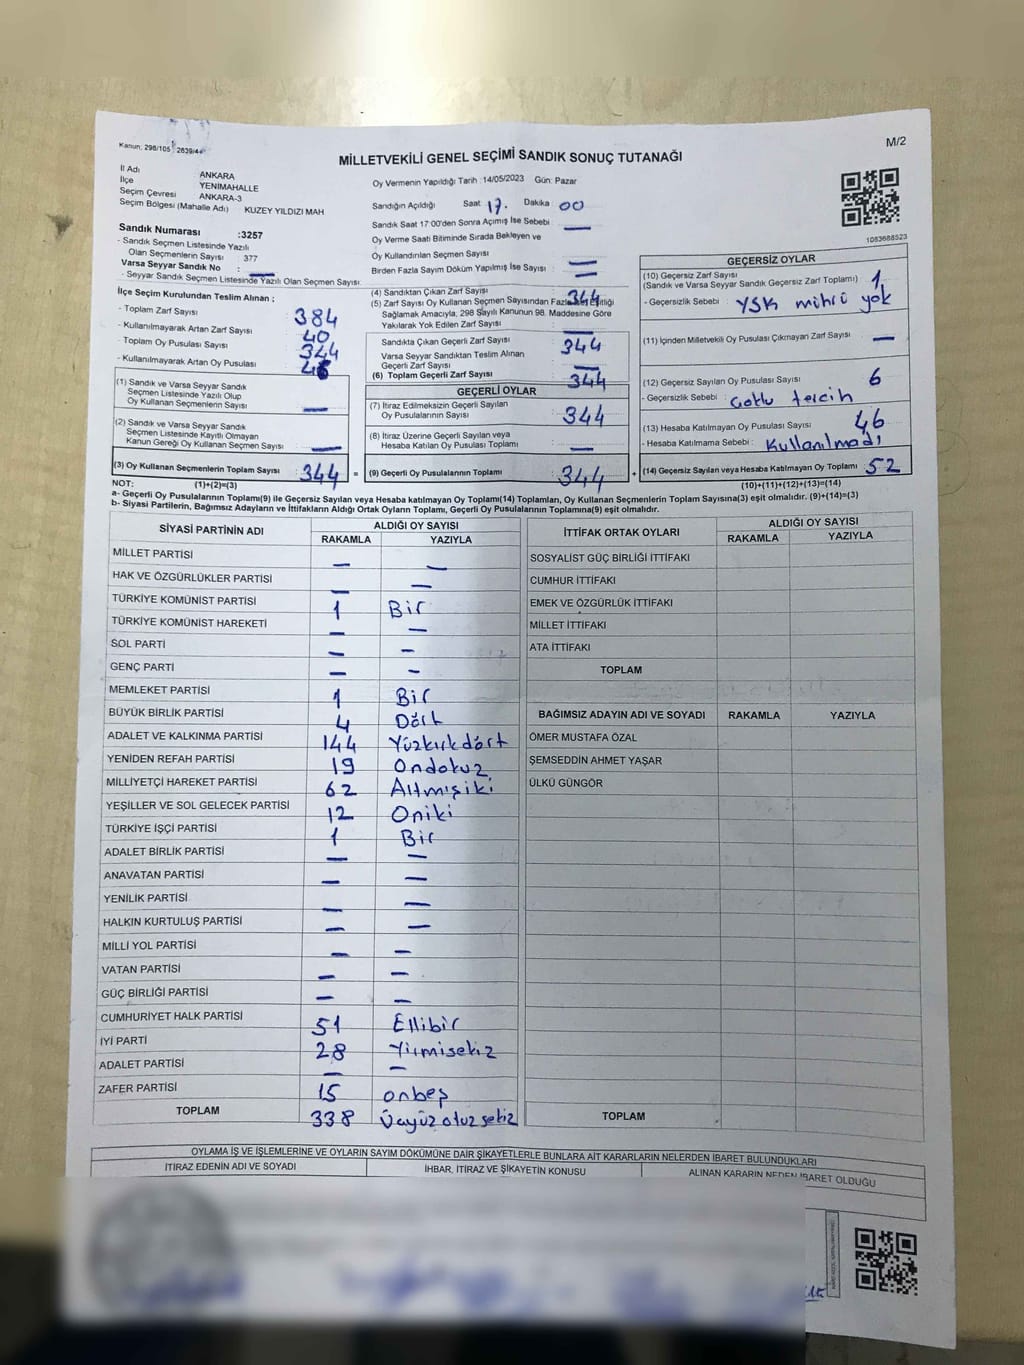 Kanun: 298/105 2839/4
M/2
MİLLETVEKİLİ GENEL SEÇİMİ SANDIK SONUÇ TUTANAĞI
İl Adı ANKARA
İlçe YENİMAHALLE
Seçim Çevresi ANKARA-3
Seçim Bölgesi (Mahalle Adı) KUZEY YILDIZI MAH
Sandık Numarası :3257
- Sandık Seçmen Listesinde Yazılı
Olan Seçmenlerin Sayısı : 377
Varsa Seyyar Sandık No : —
- Seyyar Sandık Seçmen Listesinde Yazılı Olan Seçmen Sayısı:
Oy Vermenin Yapıldığı Tarih : 14/05/2023 Gün: Pazar
Sandığın Açıldığı Saat 17. Dakika 00
Sandık Saat 17:00'den Sonra Açımış İse Sebebi : —
Oy Verme Saati Bitiminde Sırada Bekleyen ve
Oy Kullandırılan Seçmen Sayısı : —
Birden Fazla Sayım Döküm Yapılmış İse Sayısı : —
1083688523
İlçe Seçim Kurulundan Teslim Alınan ;
- Toplam Zarf Sayısı : 384
- Kullanılmayarak Artan Zarf Sayısı : 40
- Toplam Oy Pusulası Sayısı : 344
- Kullanılmayarak Artan Oy Pusulası :
(1) Sandık ve Varsa Seyyar Sandık
Seçmen Listesinde Yazılı Olup
Oy Kullanan Seçmenlerin Sayısı : —
(2) Sandık ve Varsa Seyyar Sandık
Seçmen Listesinde Kayıtlı Olmayan
Kanun Gereği Oy Kullanan Seçmen Sayısı : —
(3) Oy Kullanan Seçmenlerin Toplam Sayısı : 344 =
(4) Sandıktan Çıkan Zarf Sayısı : 344
(5) Zarf Sayısı Oy Kullanan Seçmen Sayısından Fazla İse Eşitliği
Sağlamak Amacıyla, 298 Sayılı Kanunun 98. Maddesine Göre
Yakılarak Yok Edilen Zarf Sayısı : —
Sandıkta Çıkan Geçerli Zarf Sayısı : 344
Varsa Seyyar Sandıktan Teslim Alınan
Geçerli Zarf Sayısı : —
(6) Toplam Geçerli Zarf Sayısı : 344
GEÇERLİ OYLAR
(7) İtiraz Edilmeksizin Geçerli Sayılan
Oy Pusulalarının Sayısı : 344
(8) İtiraz Üzerine Geçerli Sayılan veya
Hesaba Katılan Oy Pusulası Toplamı : —
(9) Geçerli Oy Pusulalarının Toplamı : 344 +
GEÇERSİZ OYLAR
(10) Geçersiz Zarf Sayısı : 1
(Sandık ve Varsa Seyyar Sandık Geçersiz Zarf Toplamı)
- Geçersizlik Sebebi : YSK mihrü yok
(11) İçinden Milletvekili Oy Pusulası Çıkmayan Zarf Sayısı : —
(12) Geçersiz Sayılan Oy Pusulası Sayısı : 6
- Geçersizlik Sebebi : Çoklu tercih
(13) Hesaba Katılmayan Oy Pusulası Sayısı : 46
- Hesaba Katılmama Sebebi : Kullanılmadı
(14) Geçersiz Sayılan veya Hesaba Katılmayan Oy Toplamı : 52
NOT: (1)+(2)=(3) (10)+(11)+(12)+(13)=(14)
a- Geçerli Oy Pusulalarının Toplamı(9) ile Geçersiz Sayılan veya Hesaba katılmayan Oy Toplam(14) Toplamları, Oy Kullanan Seçmenlerin Toplam Sayısına(3) eşit olmalıdır. (9)+(14)=(3)
b- Siyasi Partilerin, Bağımsız Adayların ve İttifakların Aldığı Ortak Oyların Toplamı, Geçerli Oy Pusulalarının Toplamına(9) eşit olmalıdır.
SİYASİ PARTİNİN ADI ALDIĞI OY SAYISI
RAKAMLA YAZIYLA
MİLLET PARTİSİ — —
HAK VE ÖZGÜRLÜKLER PARTİSİ — —
TÜRKİYE KOMÜNİST PARTİSİ 1 Bir
TÜRKİYE KOMÜNİST HAREKETİ — —
SOL PARTİ — —
GENÇ PARTİ — —
MEMLEKET PARTİSİ 1 Bir
BÜYÜK BİRLİK PARTİSİ 4 Dört
ADALET VE KALKINMA PARTİSİ 144 Yüzkırkdört
YENİDEN REFAH PARTİSİ 19 Ondokuz
MİLLİYETÇİ HAREKET PARTİSİ 62 Altmışiki
YEŞİLLER VE SOL GELECEK PARTİSİ 12 Oniki
TÜRKİYE İŞÇİ PARTİSİ 1 Bir
ADALET BİRLİK PARTİSİ — —
ANAVATAN PARTİSİ — —
YENİLİK PARTİSİ — —
HALKIN KURTULUŞ PARTİSİ — —
MİLLİ YOL PARTİSİ — —
VATAN PARTİSİ — —
GÜÇ BİRLİĞİ PARTİSİ — —
CUMHURİYET HALK PARTİSİ 51 Ellibir
İYİ PARTİ 28 Yirmisekiz
ADALET PARTİSİ — —
ZAFER PARTİSİ 15 onbeş
TOPLAM 338 Üçyüz otuz sekiz
İTTİFAK ORTAK OYLARI ALDIĞI OY SAYISI
RAKAMLA YAZIYLA
SOSYALİST GÜÇ BİRLİĞİ İTTİFAKI
CUMHUR İTTİFAKI
EMEK VE ÖZGÜRLÜK İTTİFAKI
MİLLET İTTİFAKI
ATA İTTİFAKI
TOPLAM
BAĞIMSIZ ADAYIN ADI VE SOYADI RAKAMLA YAZIYLA
ÖMER MUSTAFA ÖZAL
ŞEMSEDDİN AHMET YAŞAR
ÜLKÜ GÜNGÖR
TOPLAM
OYLAMA İŞ VE İŞLEMLERİNE VE OYLARIN SAYIM DÖKÜMÜNE DAİR ŞİKAYETLERLE BUNLARA AİT KARARLARIN NELERDEN İBARET BULUNDUKLARI
İTİRAZ EDENİN ADI VE SOYADI İHBAR, İTİRAZ VE ŞİKAYETİN KONUSU ALINAN KARARIN NEDEN İBARET OLDUĞU